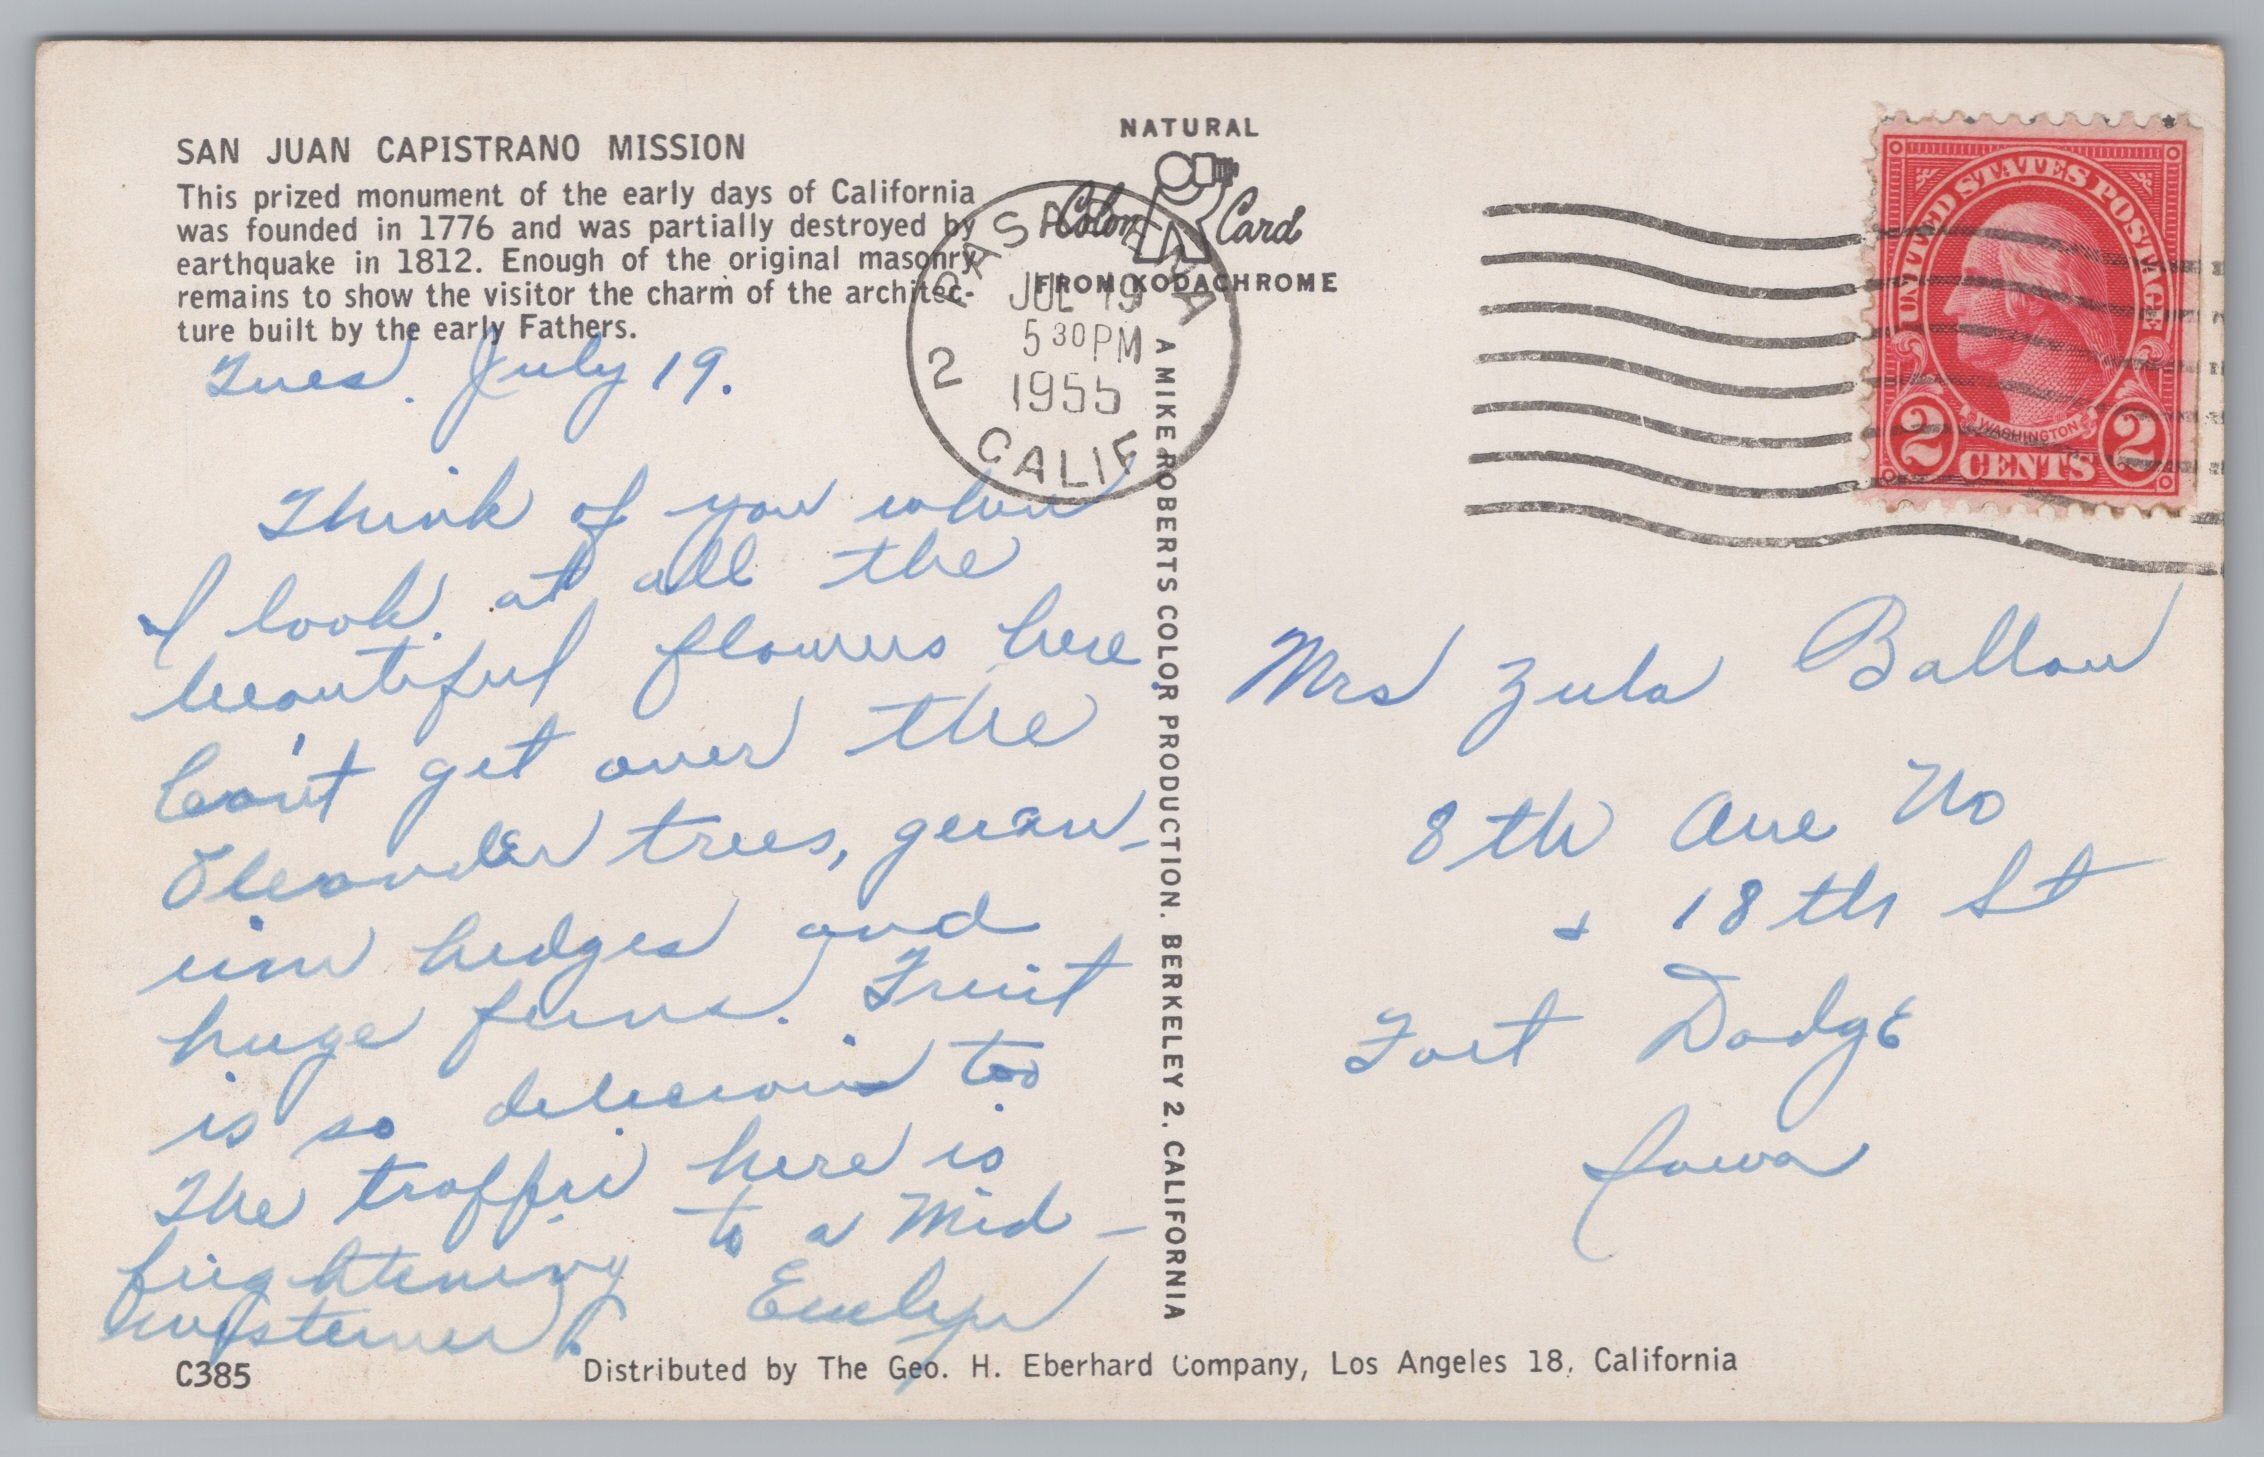 SAN JUAN CAPISTRANO MISSION
This prized monument of the early days of California
was founded in 1776 and was partially destroyed by
earthquake in 1812. Enough of the original masonry
remains to show the visitor the charm of the architec-
ture built by the early Fathers.
Tues. July 19.
Think of you when
I look at all the
beautiful flowers here.
Can't get over the
Oleander trees, geran-
ium hedges and
huge ferns. Fruit
is so delicious too.
The traffic here is
frightening to a Mid-
westerner!
Evelyn
C385
Distributed by The Geo. H. Eberhard Company, Los Angeles 18, California
NATURAL
Color Card
FROM KODACHROME
A MIKE ROBERTS COLOR PRODUCTION. BERKELEY 2. CALIFORNIA
PASADENA
2
JUL 19
5 30 PM
1955
CALIF
UNITED STATES POSTAGE
WASHINGTON
2 CENTS 2
Mrs Zula Ballou
8th Ave No
+ 18th St
Fort Dodge
Iowa